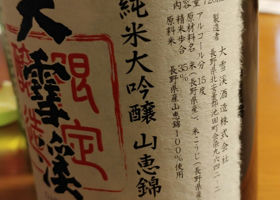 製造者 大雪渓酒造株式会社
長野県北安曇郡池田町会染九六四二
アルコール分 15度
原材料名 米(長野県産)、米こうじ(長野県産
精米歩合 35%
原料米 長野県産山恵錦100%使用
純米大吟醸 山恵錦
大雪渓
限定